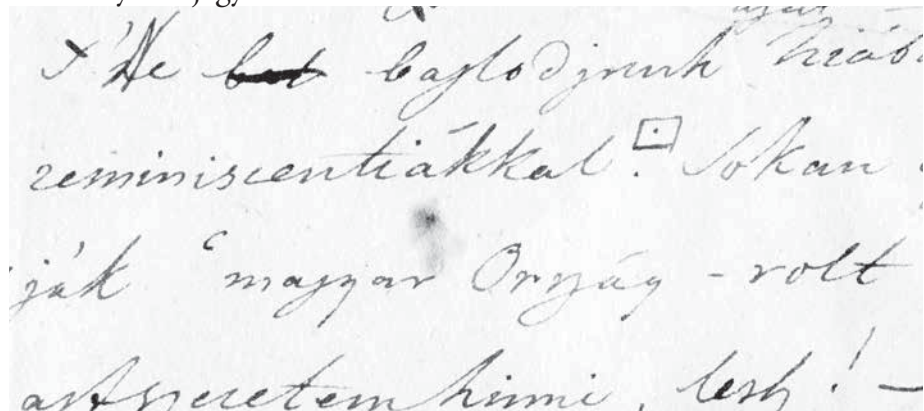 Ne bajlodjunk hiáb
reminiscentiákkal. Sokan
ják "magyar Ország -volt
azt szeretem hinni, lesz! —